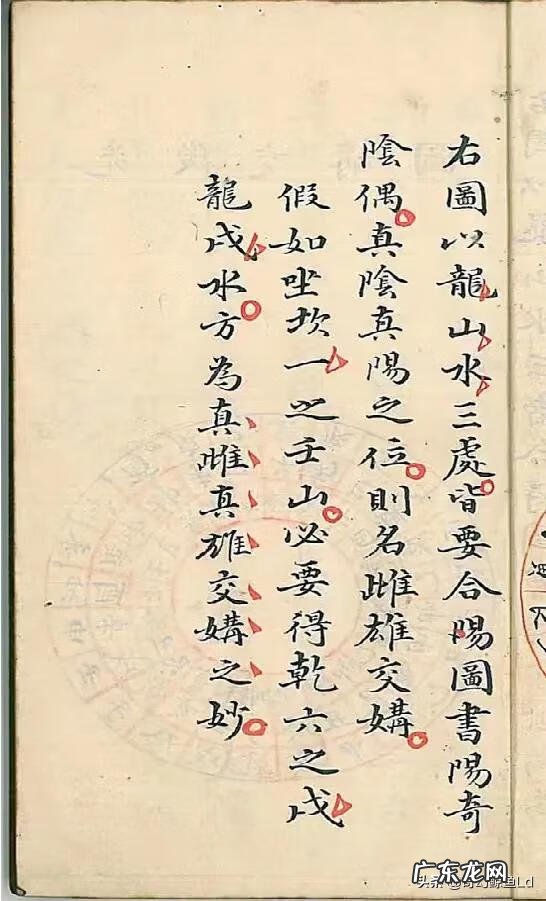 右圖以龍山水三處皆要合陽圖書陽奇
陰偶真陰真陽之位則名雌雄交媾
假如坐坎一之壬山必要得乾六之戌
龍戌水方為真雌真雄交媾之妙
广东龙网